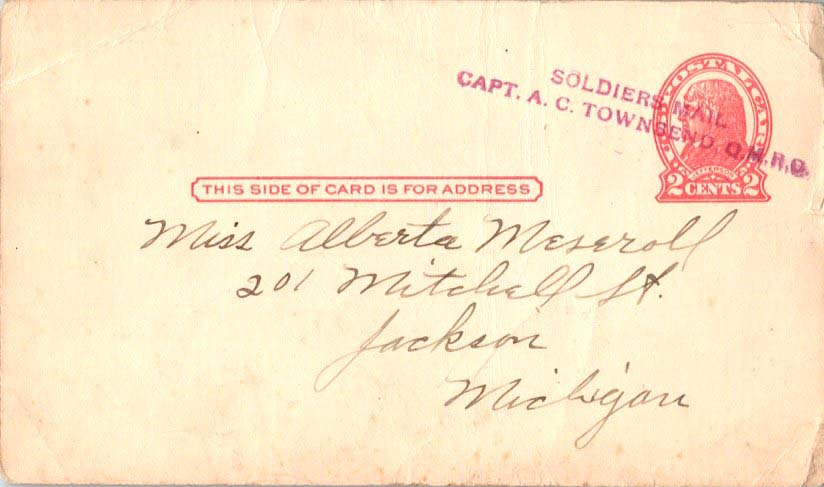 SOLDIERS MAIL
CAPT. A. C. TOWNSEND, Q.M.R.C.
POSTAGE
JEFFERSON
2 CENTS 2
THIS SIDE OF CARD IS FOR ADDRESS
Miss Alberta Meseroll
201 Mitchell St.
Jackson
Michigan